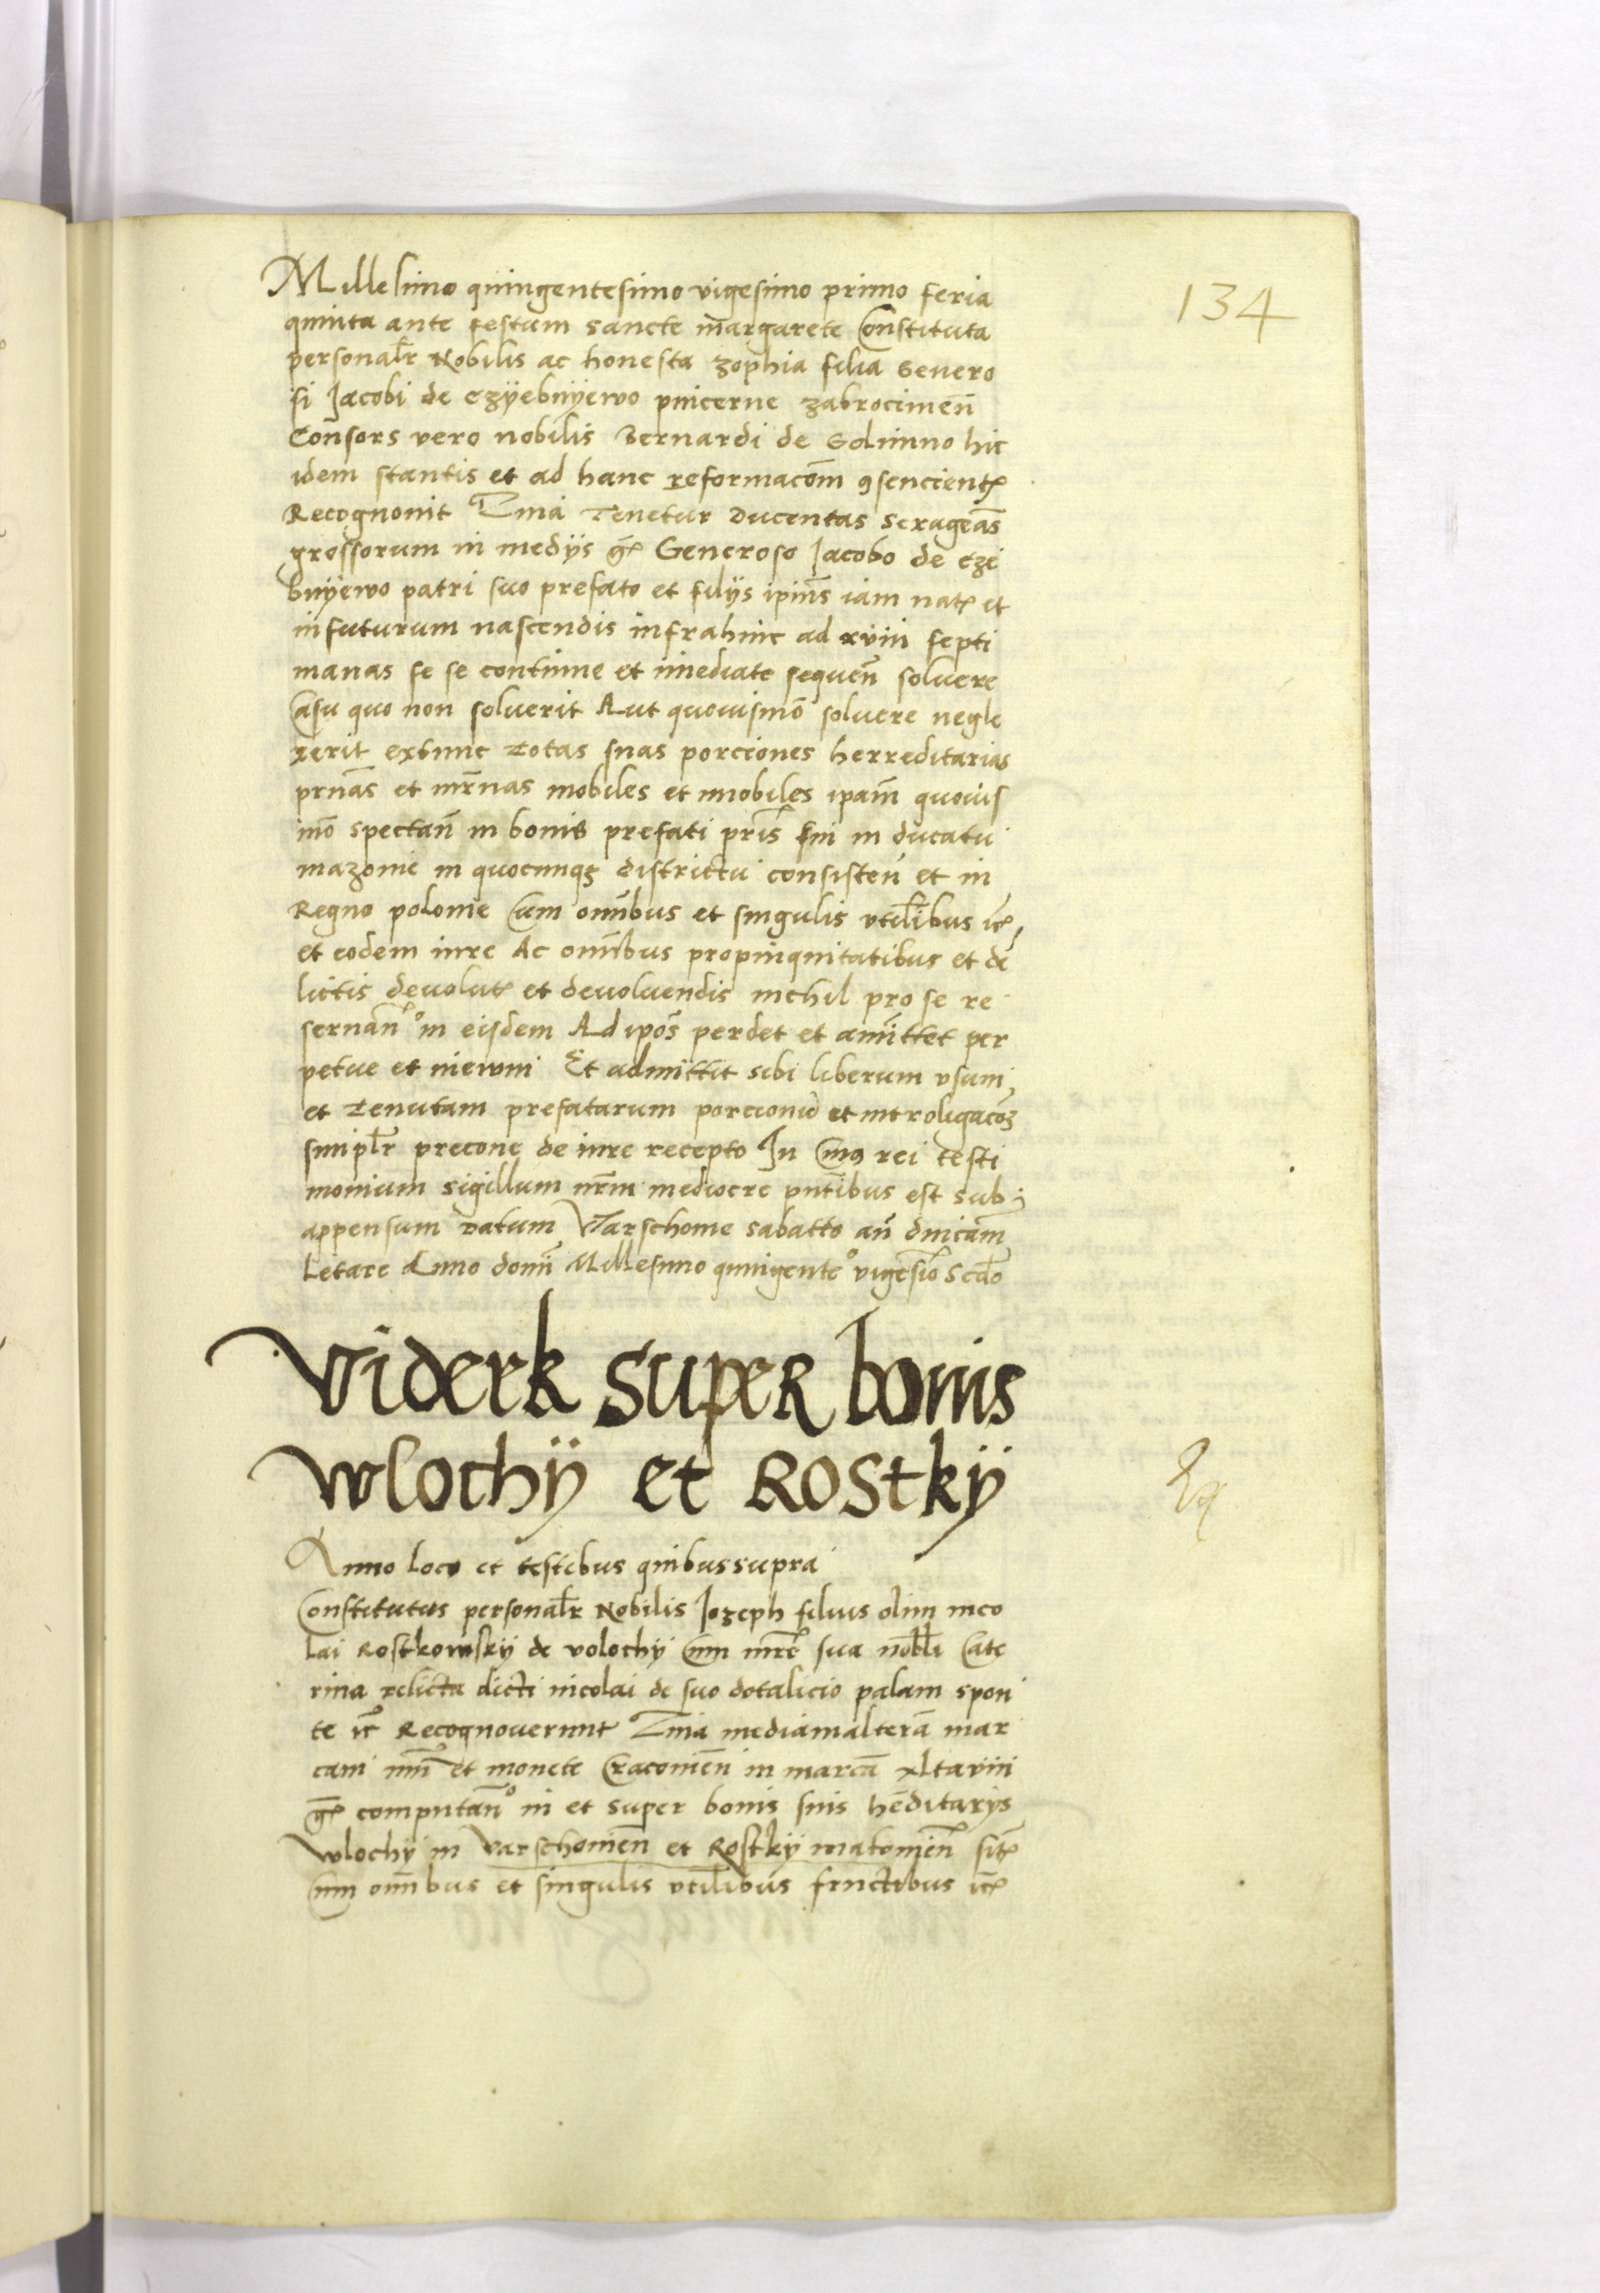 134
Millesimo quingentesimo vigesimo primo feria
quinta ante festum sancte margarete Constituta
personalr Nobilis ac honesta zophia filia Genero
si Jacobi de Czyebnyewo pincerne zakrocimen
Consors vero nobilis Bernardi de Golimno hic
idem stantis et ad hanc reformacom 9sencient
Recognovit Quia Tenetur Ducentas sexageas
grossorum in medys gr Generoso Jacobo de Czi
bnyewo patri suo prefato et filys ipius iam nat et
in futurum nascendis infrahinc ad xviii septi
manas se se continue et imediate sequen solvere
Casu quo non solverit Aut quovismo solvere negle
xerit extunc Totas suas porciones herreditarias
prnas et mrnas mobiles et imobiles ipam quovis
mo spectan in bonis prefati pris sui in ducatu
mazovie in quocunqz districtu consisten et in
Regno polonie Cum omibus et singulis utilibus ic
et eodem iure Ac omibus propinquitatibus et de
lictis devolut et devolvendis nichil pro se re
servan in eisdem Ad ipos perdet et amittet per
petue et in ewm Et admittit sibi liberum usum
et Tenutam prefatarum porcionu et introligacoz
simplr precone de iure recepto In Cuius rei testi
monium sigillum nrm mediocre pntibus est sub
appensum Datum Varschovie sabatto an dnicam
Letare Anno domi Millesimo quingente vigesio Scdo
Viderk super bonis
Wlochy et Rostky
Anno loco et testibus quibus supra
Constitutus personalr Nobilis Jozeph filius olim nico
lai Rostkowsky de volochy Cum mre sua nobli Cate
rina relicta dicti nicolai de suo dotalicio palam spon
te ic Recognoverunt Quia mediam alteram mar
cam num et monete Cracovien in marcam xltaviii
gr computan in et super bonis suis heditarys
Wlochy in Varschovien et Rostky makovien sit
Cum omibus et singulis utilibus fructibus ic